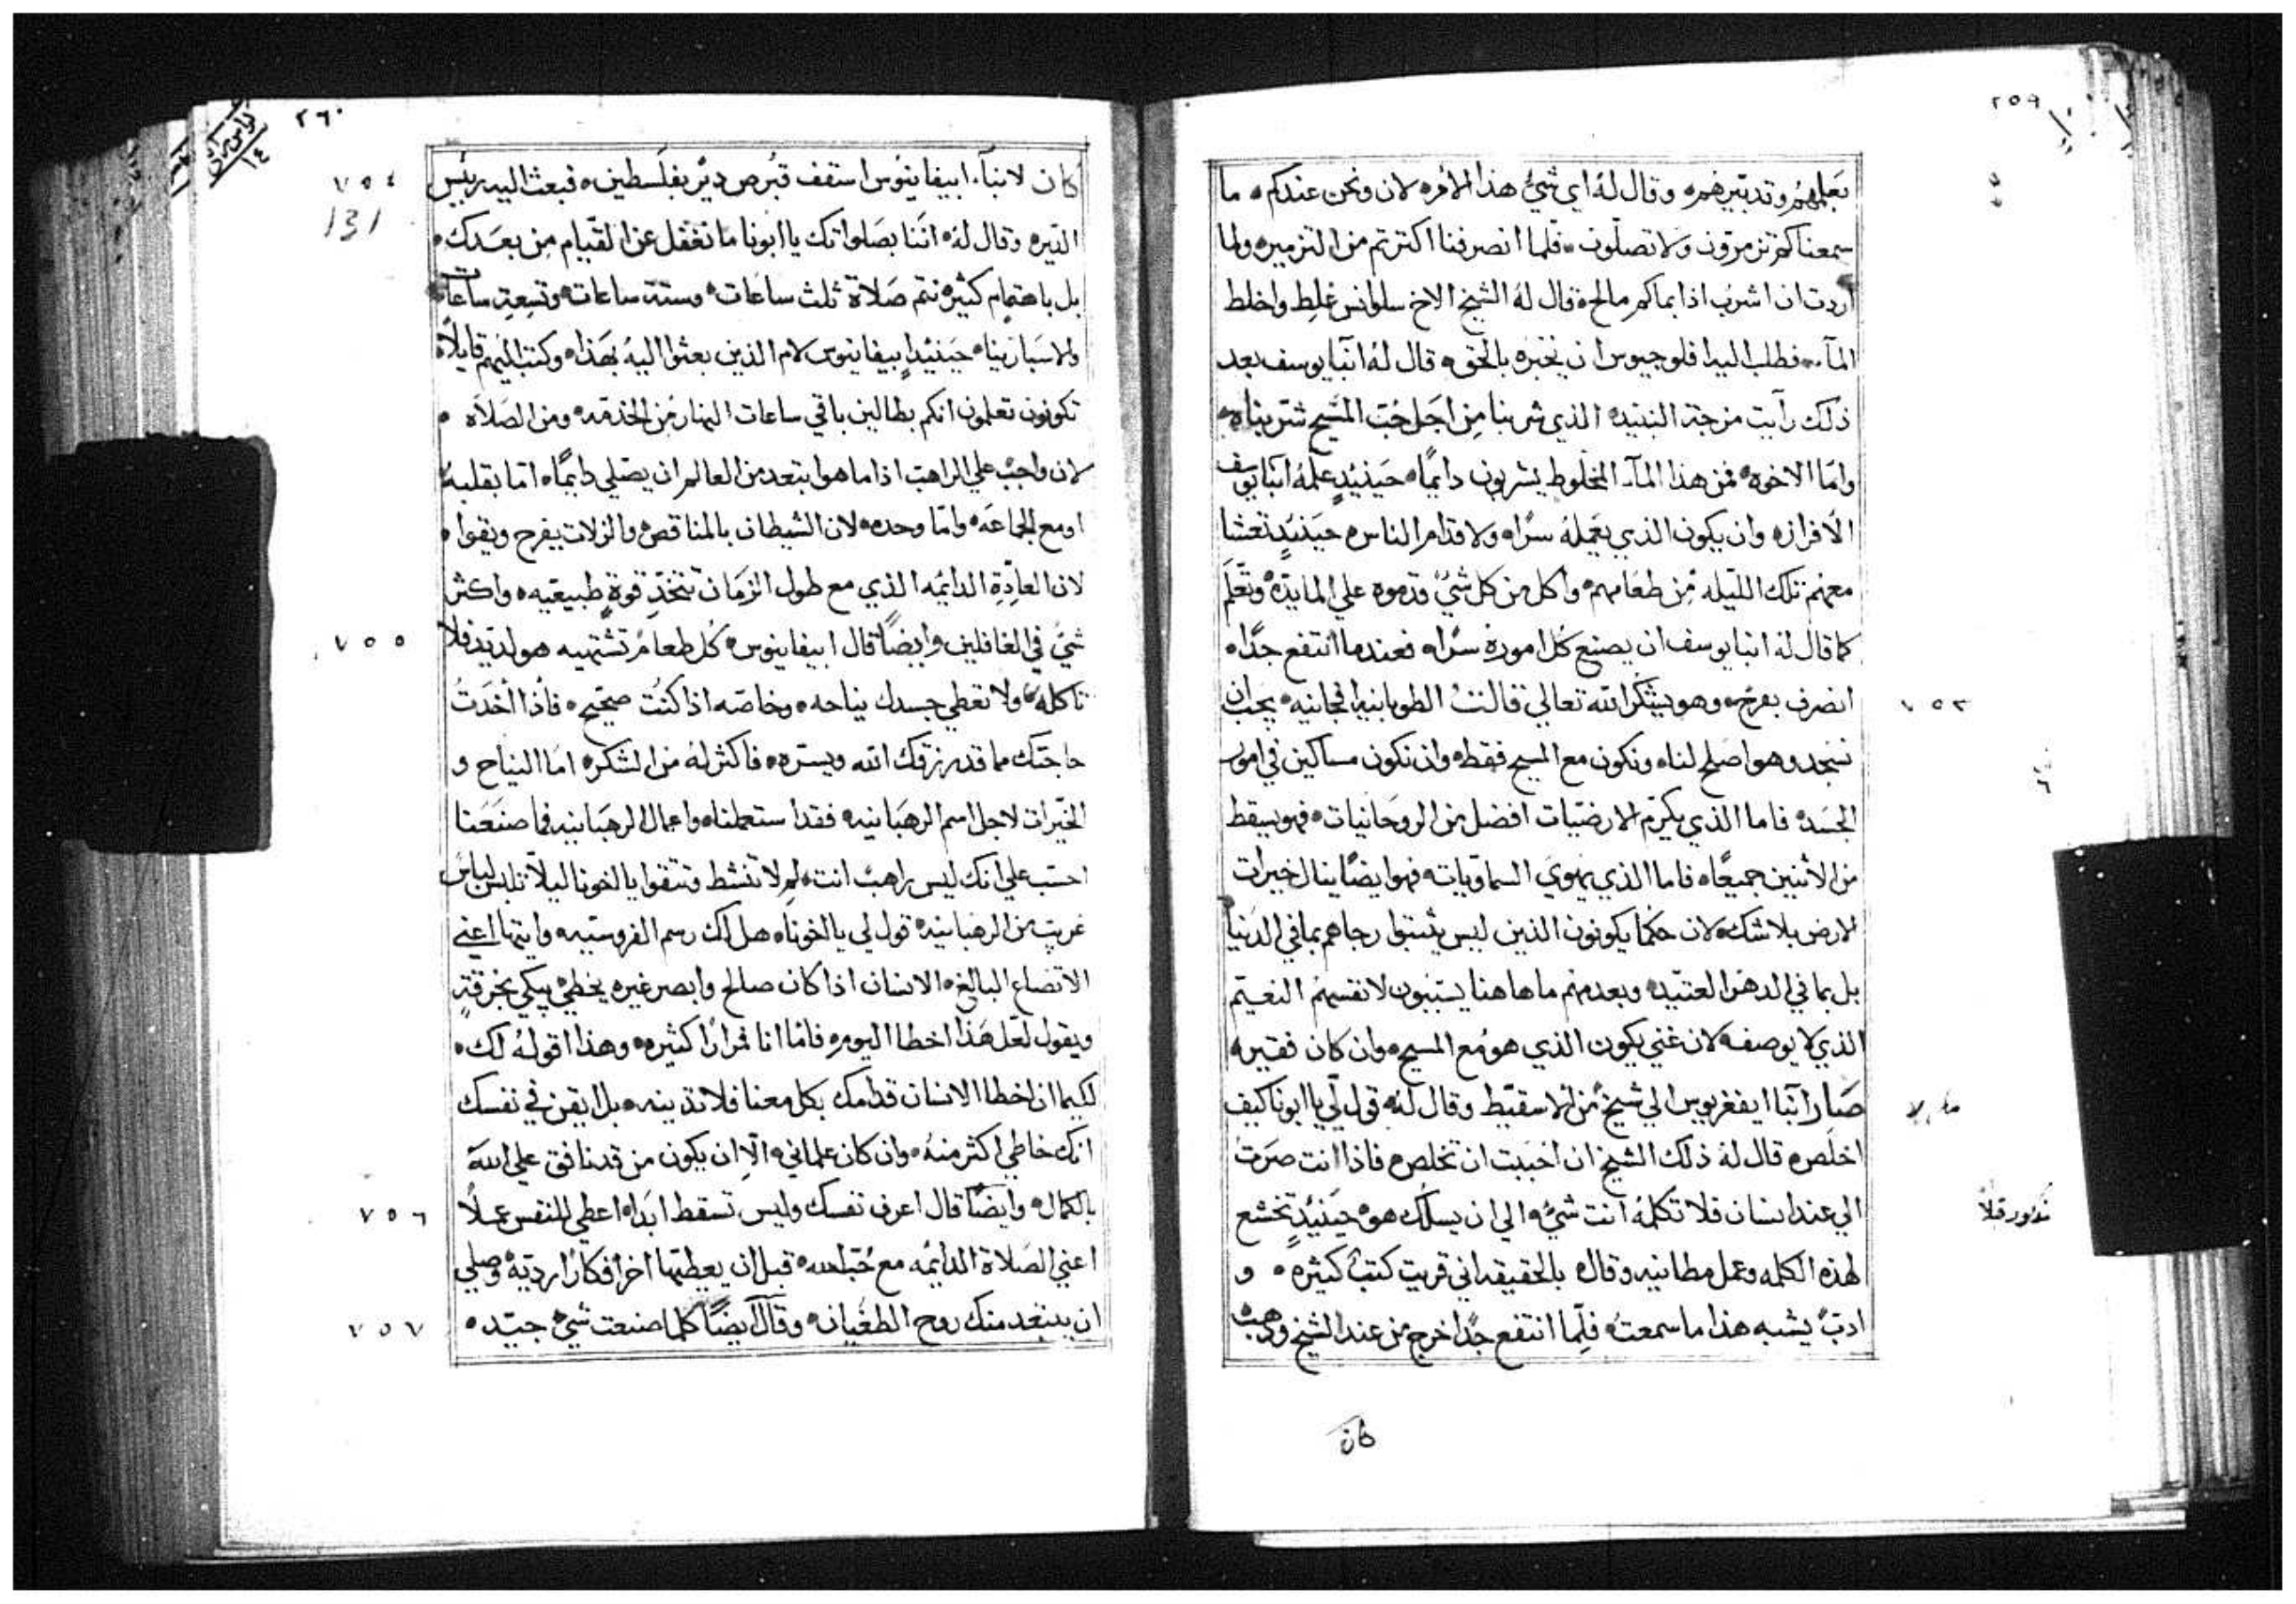 ٢٥٩
بعلمهم وتدبيرهم وقال له اي شي هذا الامر لان ونحن عندكم ما
سمعناكم تزمرون ولا تصلون فلما انصرفنا اكثرتم من التزمير ولما
اردت ان اشرب اذا بماكم مالح قال له الشيخ الاخ سلوانس غلط واخلط
المآء فطلب اليه افلوجيوس ان نخبره بالحق قال له انبا يوسف بعد
ذلك رايت مزجة النبيذ الذي شربنا من اجل حب المسيح شربناه
واما الاخوه فمن هذا المآء المخلوط يشربون دايما حينيذ علمه انبا يوسف
الافراز وان يكون الذي يعمله سرا ولا قدام الناس حينيذ تعشا
معهم تلك الليله من طعامهم واكل من كل شي قدموه علي المايدة وتعلم
كما قال له انبا يوسف ان يصنع كل اموره سرا فعندما انتفع جدا
انصرف بفرح وهو يشكر الله تعالي قالت الطوبانيه الجانيه يجب ان
٧٥٢
نسجد وهو اصلح لنا ونكون مع المسيح فقط وان نكون مساكين في امور
الجسد فاما الذي يكرم الارضيات افضل من الروحانيات فهو يسقط
من الاثنين جميعا فاما الذي يهوي السماويات فهو ايضا ينال خيرات
الارض بلا شك لان حكما يكونون الذين ليس يثبتوا رجاهم بما في الدنيا
بل بما في الدهر العتيد وبعدهم ما هاهنا يسببون لانفسهم النعيم
الذي لا يوصف لان غني يكون الذي هو مع المسيح وان كان فقير
صار انبا ايفغريوس الي شيخ من الاسقيط وقال له قول لي يا ابونا كيف
اخلص قال له ذلك الشيخ ان احببت ان تخلص فاذا انت صرت
الي عند انسان فلا تكلم انت شي الي ان يسلك هو حينيذ تخشع
لهذه الكلمه وعمل مطانيه وقال بالحقيقه اني قريت كتب كثيره و
ادب يشبه هذا ما سمعت فلما انتفع جدا خرج من عند الشيخ وذهب
كان
٢٦٠
كان لانبآء ابيفانيوس اسقف قبرص دير بفلسطين فبعث اليه رييس
٧٥٤
131
الدير وقال له اننا بصلواتك يا ابونا ما نغفل عن القيام من بعدك
بل باهتمام كثير نتم صلاة ثلث ساعات وستة ساعات وتسعة ساعات
والاسبارينا حينيذ ابيفانيوس لام الذين بعثوا اليه بهذا وكتب اليهم قايلا
تكونون تعلمون انكم بطالين باقي ساعات النهار من الخدمه ومن الصلاه
لان واجب علي الراهب اذا ما هو ابتعد من العالم ان يصلي دايما اما بقلبه
او مع الجماعه واما وحده لان الشيطان بالمناقص والزلات يفرح ويقوا
لان العادة الدايمه الذي مع طول الزمان تتخذ قوة طبيعيه واكثر
شي في الغافلين وايضا قال ابيفانيوس كل طعام تشتهيه هو لديد فلا
٧٥٥
تاكله ولا تعطي جسدك نياحه وخاصه اذا كنت صحيح فاذا اخدت
حاجتك مما قد رزقك الله ويسره فاكثر له من الشكر اما النياح و
الخيرات لاجل اسم الرهبانيه فقد استعملنا واعمال الرهبانيه فما صنعنا
احسب علي انك ليس راهب انت لم لا تنشط وتتقوا يا اخونا ليلا تلبس لباس
غريب من الرهبانيه قول لي يا اخونا هل لك رسم الفروسيه وايتها اعني
الاتضاع البالغ الانسان اذا كان صالح وابصر غيره يخطي يبكي بحرقة
ويقول لعل هذا اخطا اليوم فاما انا فمرارا كثيره وهذا اقوله لك
لكيما ان اخطا الانسان قدامك بكل معنا فلا تدينه بل ايقن في نفسك
انك خاطي اكثر منه وان كان علماني الا ان يكون من قد نافق علي الله
بالكمال وايضا قال اعرف نفسك وليس تسقط ابدا اعطي للنفس عملا
٧٥٦
اعني الصلاة الدايمه مع حب الله قبل ان يعطيها اخر افكارا رديه وصلي
ان يبتعد منك روح الطغيان وقال ايضا كلما صنعت شي جيد
٧٥٧